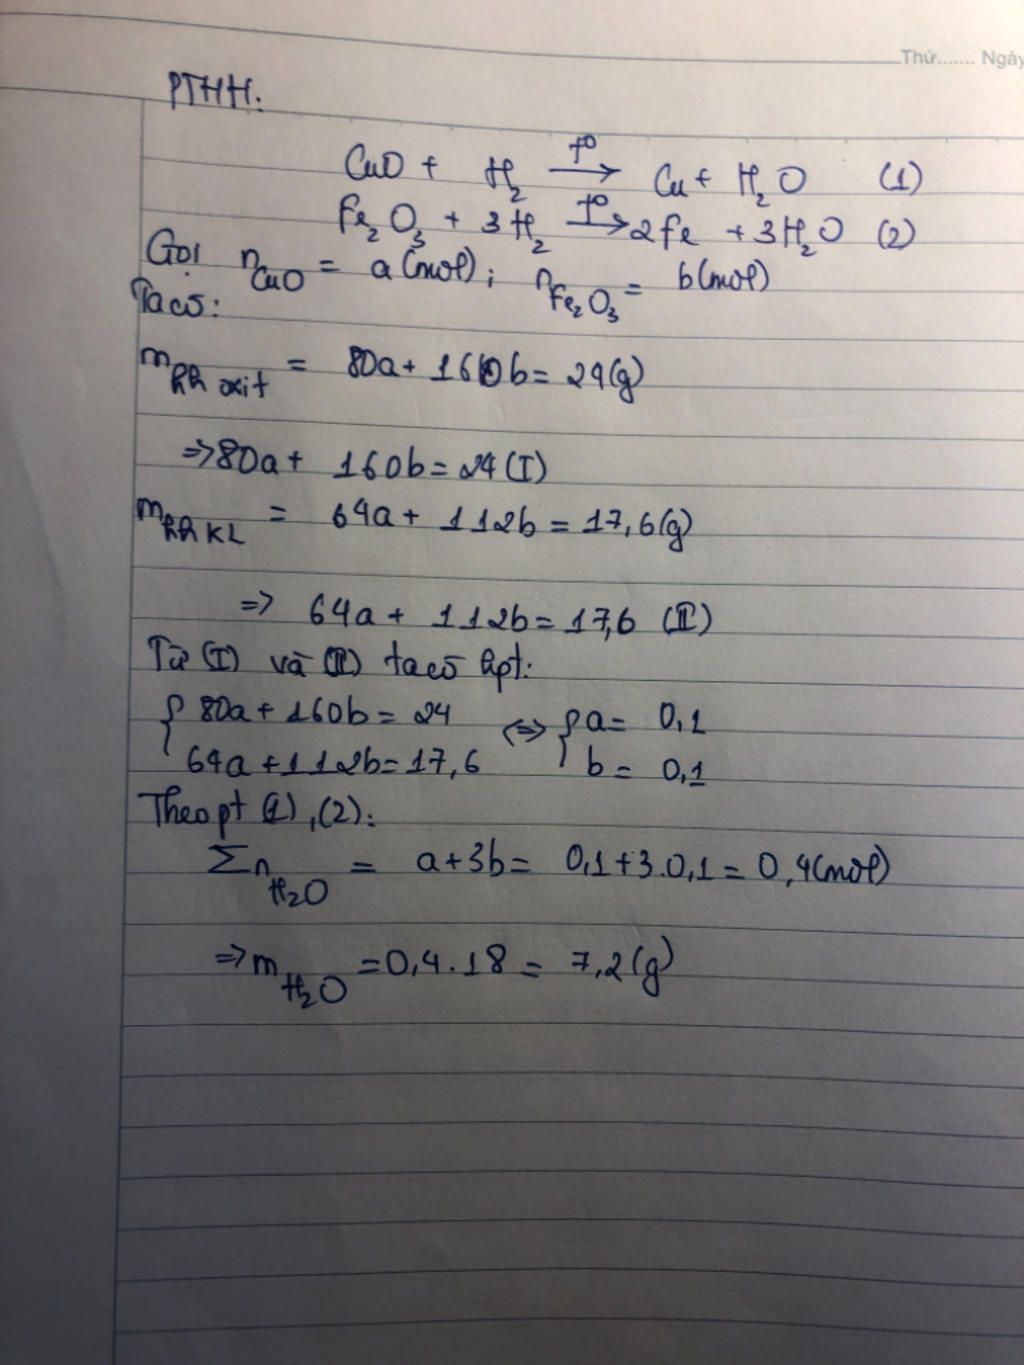 Thứ....... Ngày
PTHH:
CuO + H₂ –t°→ Cu + H₂O (1)
Fe₂O₃ + 3H₂ –t°→ 2Fe + 3H₂O (2)
Gọi n_CuO = a (mol); n_Fe₂O₃ = b (mol)
Ta có:
m_hh oxit = 80a + 160b = 24 (g)
⇒ 80a + 160b = 24 (I)
m_hh KL = 64a + 112b = 17,6 (g)
⇒ 64a + 112b = 17,6 (II)
Từ (I) và (II) ta có hpt:
{ 80a + 160b = 24 ⇔ { a = 0,1
64a + 112b = 17,6 b = 0,1
Theo pt (1), (2):
Σn_H₂O = a + 3b = 0,1 + 3.0,1 = 0,4 (mol)
⇒ m_H₂O = 0,4 . 18 = 7,2 (g)